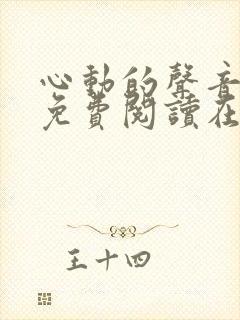 心動的聲音
免費閱讀在
王十四